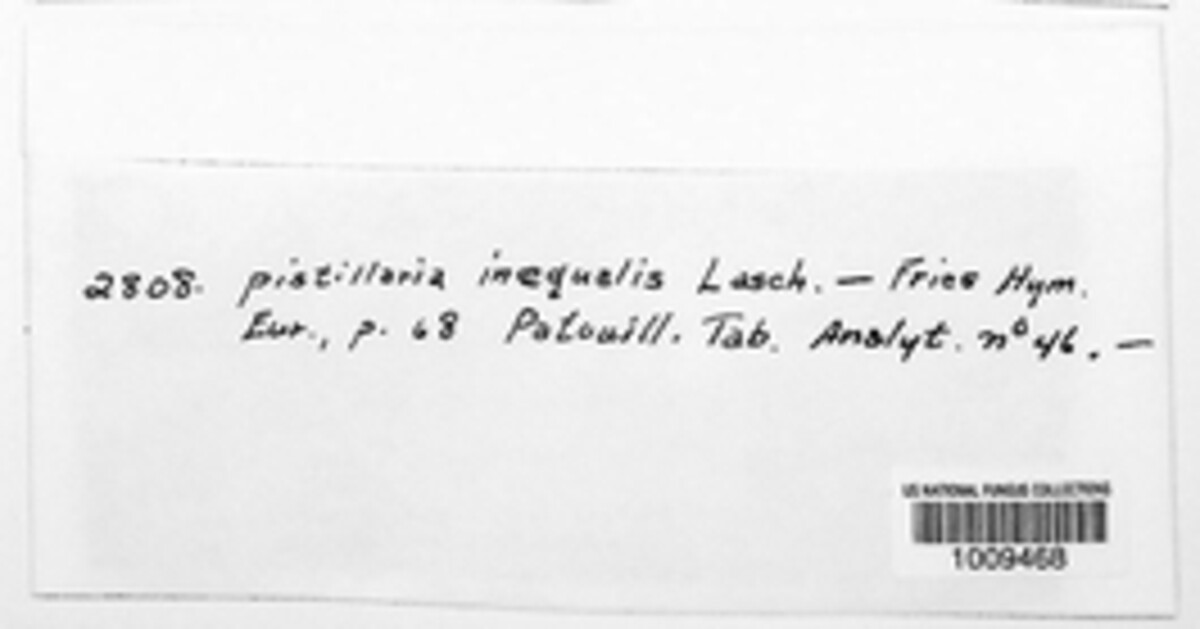 2808. pistillaria inequalis Lasch. — Fries Hym.
Eur., p. 68 Patouill. Tab. Analyt. nº 46. —
US NATIONAL FUNGUS COLLECTIONS
1009468